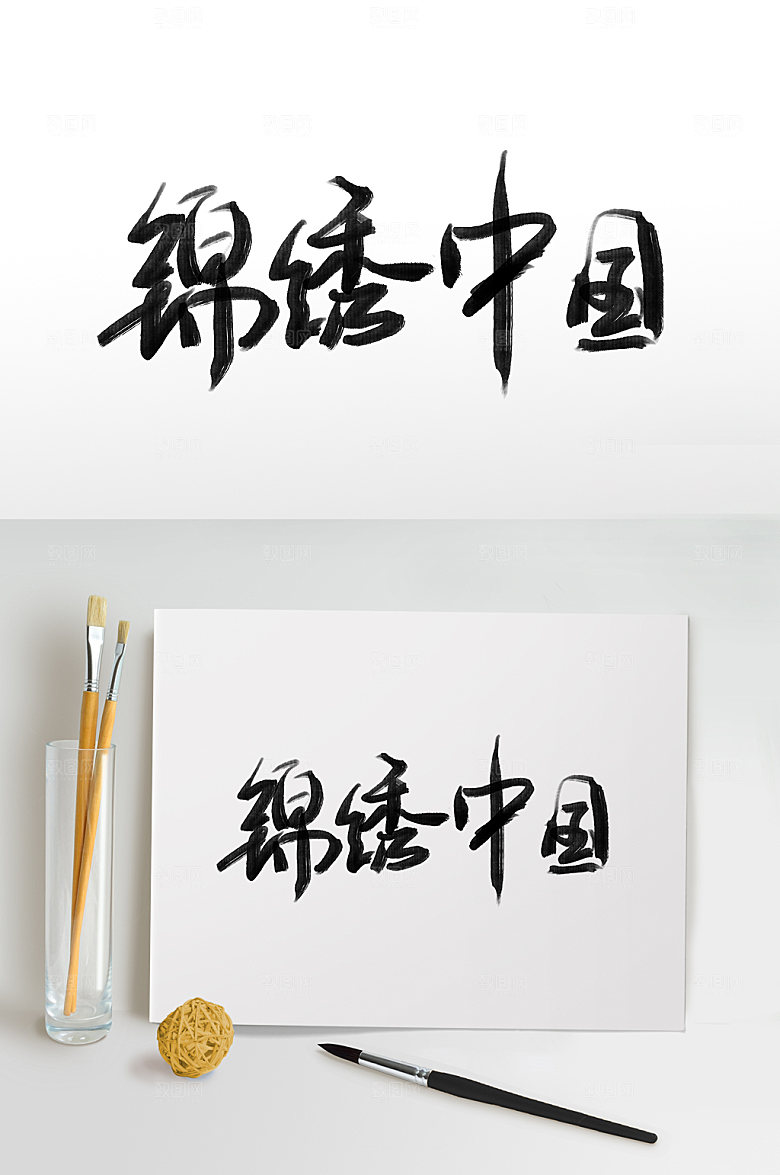 锦绣中国
锦绣中国